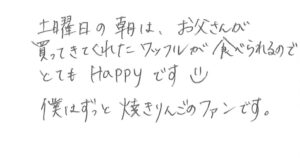 土曜日の朝は、お父さんが
買ってきてくれたワッフルが食べられるので
とてもHappyです
僕はずっと焼きりんごのファンです。